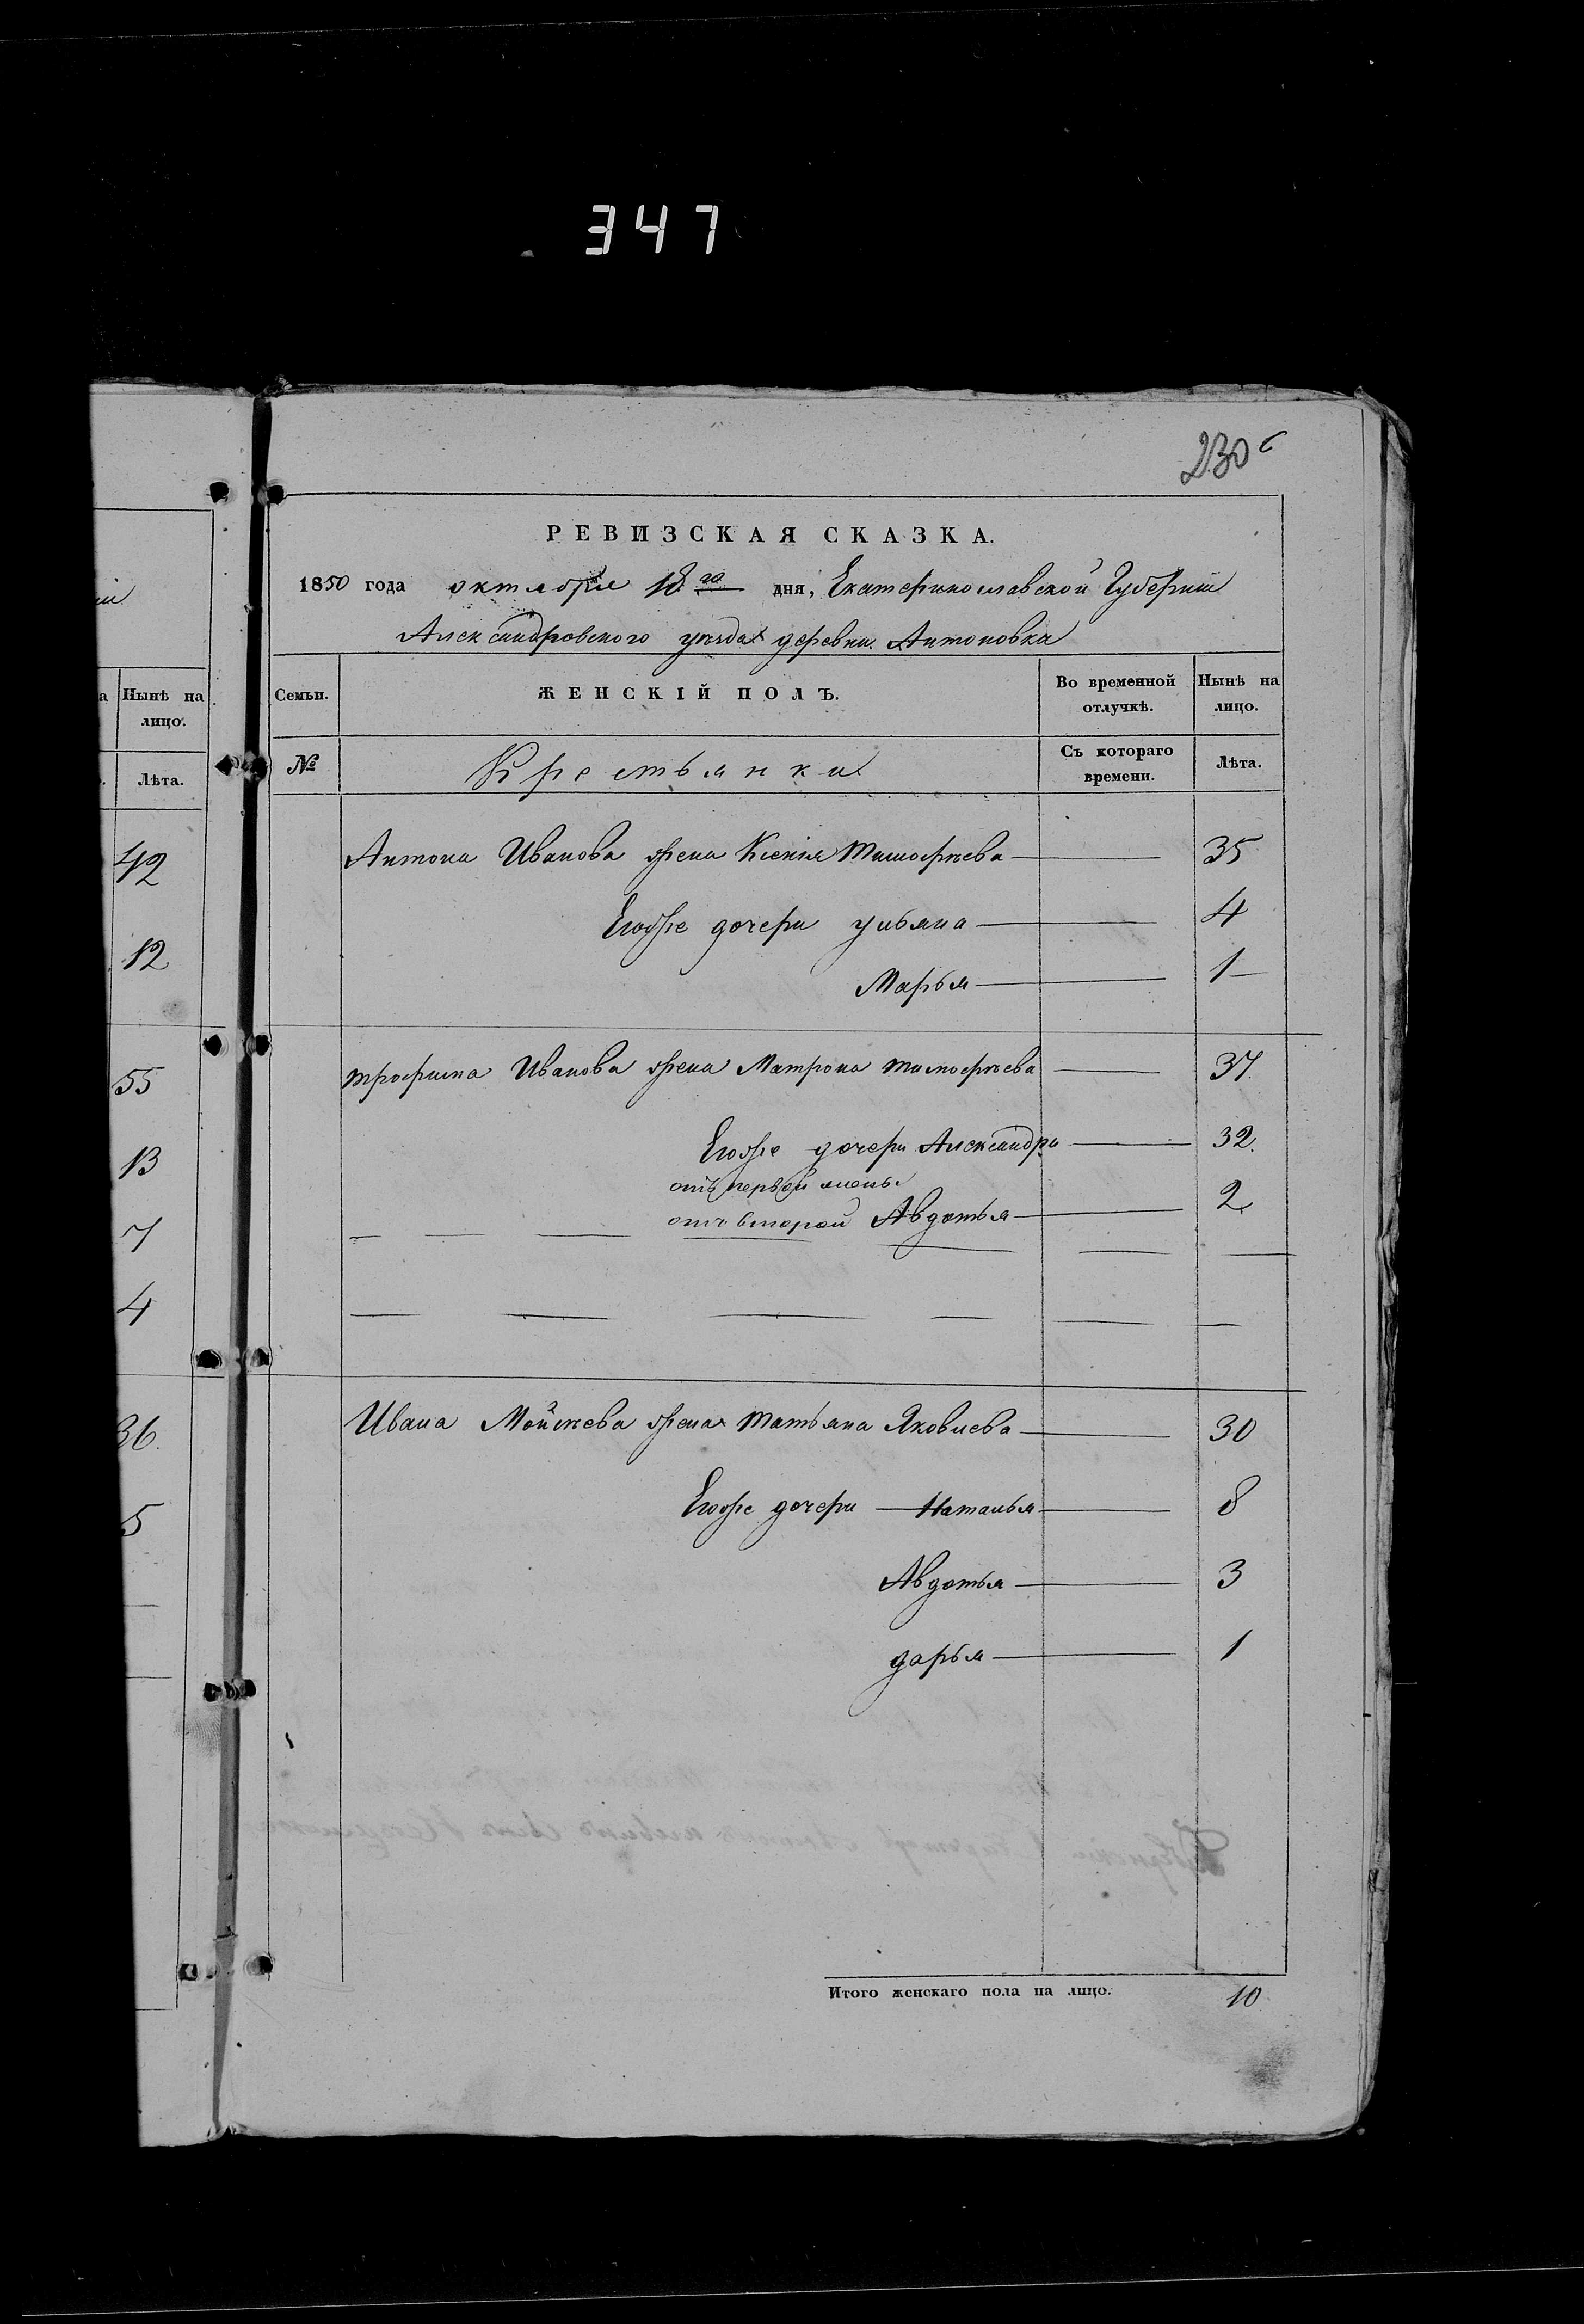 347
230
РЕВИЗСКАЯ СКАЗКА.
1850 года октября 18го дня, Екатеринославской Губернии
Александровского уезда деревни Антоновка
а Нынѣ на лицо.
Лѣта.
42
12
55
13
7
4
36.
5
Семьи. ЖЕНСКІЙ ПОЛЪ. Во временной отлучкѣ. Нынѣ на лицо.
№ Крестьянки Съ котораго времени. Лѣта.
Антона Иванова жена Ксения Тимофѣева — 35
Егоже дочери Ульяна — 4
Марья — 1
трофима Иванова жена Матрона тимофѣева — 37.
Егоже дочери Александра — 32.
отъ первой жены
отъ второй Авдотья — 2
Ивана Мойсѣева жена татьяна Яковлева — 30
Егоже дочери — Наталья — 8
Авдотья — 3
дарья — 1
Итого женскаго пола на лицо. 10